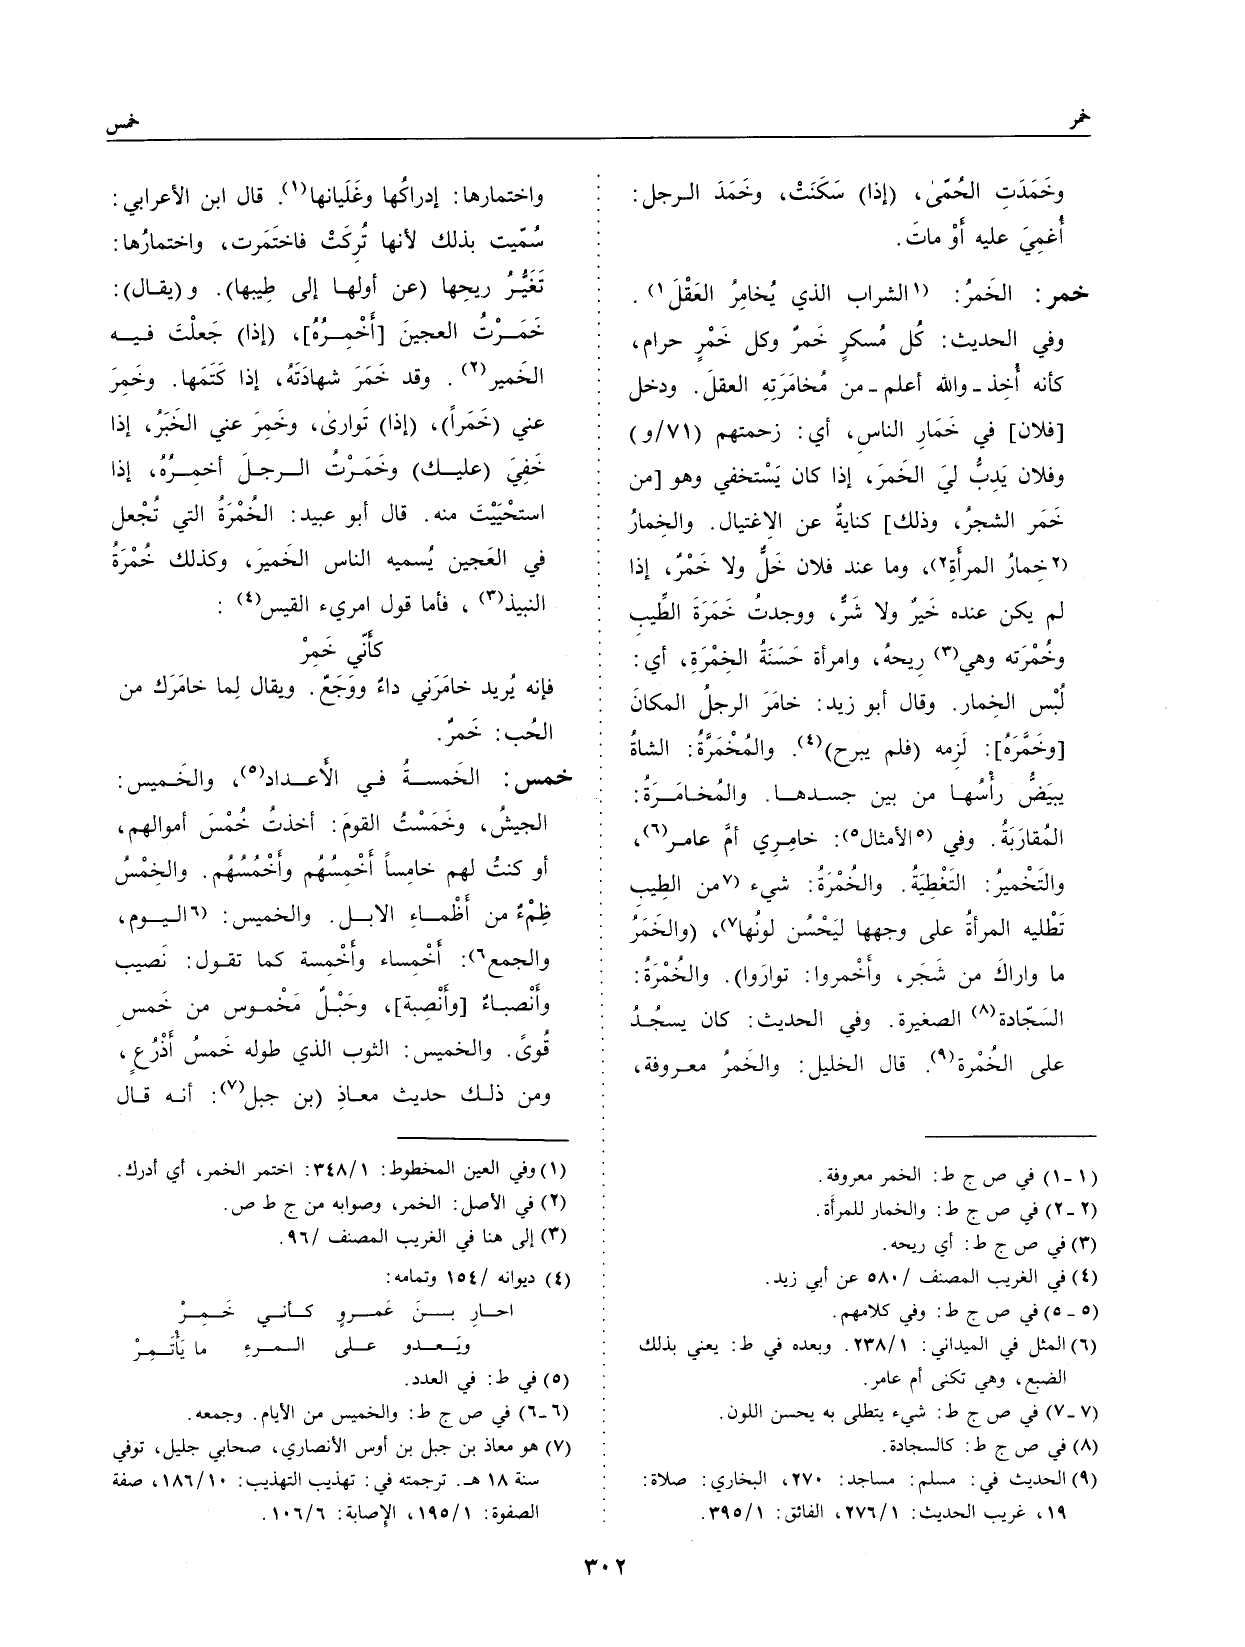 خمر
خمس
وخَمَدَتِ الحُمّىٰ، (إذا) سَكَنَتْ، وخَمَدَ الرجل:
أُغمِيَ عليه أَوْ ماتَ.
خمر: الخَمرُ: (١الشراب الذي يُخامِرُ العَقْلَ١).
وفي الحديث: كُل مُسكرٍ خَمرٌ وكل خَمْرٍ حرام،
كأنه أُخِذ ـ والله أعلم ـ من مُخامَرَتِهِ العقلَ. ودخل
[فلان] في خَمَارِ الناس، أي: زحمتهم (٧١/و)
وفلان يَدِبُّ ليَ الخَمرَ، إذا كان يَسْتخفي وهو [من
خَمَر الشجرُ، وذلك] كنايةٌ عن الاغتيال. والخِمارُ
(٢خِمارُ المرأَةِ٢)، وما عند فلان خَلٌّ ولا خَمْرٌ، إذا
لم يكن عنده خَيرٌ ولا شَرٌّ، ووجدتُ خَمَرَةَ الطِّيبِ
وخُمْرَته وهي(٣) رِيحهُ، وامرأة حَسَنَةُ الخِمْرَةِ، أي:
لُبْس الخِمار. وقال أبو زيد: خامَرَ الرجلُ المكانَ
[وخَمَّرَهُ]: لَزِمه (فلم يبرح)(٤). والمُخْمَرَّةُ: الشاةُ
يبيَضُّ رأْسُها من بين جسدها. والمُخامَرَةُ:
المُقارَبَةُ. وفي (٥الأمثال٥): خامِرِي أمَّ عامر(٦)،
والتَخْميرُ: التَغْطِيَةُ. والخُمْرَةُ: شيء (٧من الطِيبِ
تَطْليه المرأةُ على وجهها لِيَحْسُن لونُها٧)، (والخَمَرُ
ما واراكَ من شَجَر، وأَخْمروا: توارَوا). والخُمْرَةُ:
السَجّادة(٨) الصغيرة. وفي الحديث: كان يسجُدُ
على الخُمْرة(٩). قال الخليل: والخَمرُ معروفة،
(١-١) في ص ج ط: الخمر معروفة.
(٢-٢) في ص ج ط: والخمار للمرأة.
(٣) في ص ج ط: أي ريحه.
(٤) في الغريب المصنف /٥٨٠ عن أبي زيد.
(٥ - ٥) في ص ج ط: وفي كلامهم.
(٦) المثل في الميداني: ٢٣٨/١. وبعده في ط: يعني بذلك
الضبع، وهي تكنى أم عامر.
(٧-٧) في ص ج ط: شيء يتطلى به يحسن اللون.
(٨) في ص ج ط: كالسجادة.
(٩) الحديث في: مسلم: مساجد: ٢٧٠، البخاري: صلاة:
١٩، غريب الحديث: ٢٧٦/١، الفائق: ٣٩٥/١.
واختمارها: إدراكُها وغَلَيانها(١). قال ابن الأعرابي:
سُمّيت بذلك لأنها تُرِكَتْ فاختَمَرت، واختمارُها:
تَغَيُّرُ ريحِها (عن أولها إلى طِيبها). و(يقال):
خَمَرْتُ العجينَ [أَخْمِرُهُ]، (إذا) جَعلْتَ فيه
الخَمير(٢). وقد خَمَرَ شهادَتَهُ، إذا كَتَمَها. وخَمِرَ
عني (خَمَراً)، (إذا) تَوارىٰ، وخَمِرَ عني الخَبَرُ، إذا
خَفِيَ (عليك) وخَمَرْتُ الرجلَ أخمِرُهُ، إذا
استحْيَيْتَ منه. قال أبو عبيد: الخُمْرَةُ التي تُجْعل
في العَجين يُسميه الناس الخَميرَ، وكذلك خُمْرَةُ
النبيذ(٣)، فأما قول امرىء القيس(٤):
كأَنّي خَمِرْ
فإنه يُريد خامَرَني داءٌ ووَجَعٌ. ويقال لِما خامَرَك من
الحُب: خَمرٌ.
خمس: الخَمسةُ في الأَعداد(٥)، والخَميس:
الجيشُ، وخَمَسْتُ القومَ: أخذتُ خُمْسَ أموالهم،
أو كنتُ لهم خامِساً أَخْمِسُهُم وأَخْمُسُهُم. والخِمْسُ
ظِمْءٌ من أَظْماءِ الابل. والخميس: (٦اليوم،
والجمع٦): أَخْمِساء وأَخْمِسة كما تقول: نَصيب
وأَنْصباءُ [وأَنْصِبة]، وحَبْلٌ مَخْموس من خَمسِ
قُوىً. والخميس: الثوب الذي طوله خَمسُ أَذْرُعٍ،
ومن ذلك حديث معاذِ (بن جبل(٧): أنه قال
(١) وفي العين المخطوط: ٣٤٨/١: اختمر الخمر، أي أدرك.
(٢) في الأصل: الخمر، وصوابه من ج ط ص.
(٣) إلى هنا في الغريب المصنف /٩٦.
(٤) ديوانه /١٥٤ وتمامه:
احارِ بنَ عَمرٍو كأني خَمِرْ
ويَعدو على المرءِ ما يَأْتَمِرْ
(٥) في ط: في العدد.
(٦-٦) في ص ج ط: والخميس من الأيام. وجمعه.
(٧) هو معاذ بن جبل بن أوس الأنصاري، صحابي جليل، توفي
سنة ١٨ هـ. ترجمته في: تهذيب التهذيب: ١٨٦/١٠، صفة
الصفوة: ١٩٥/١، الإصابة: ١٠٦/٦.
٣٠٢